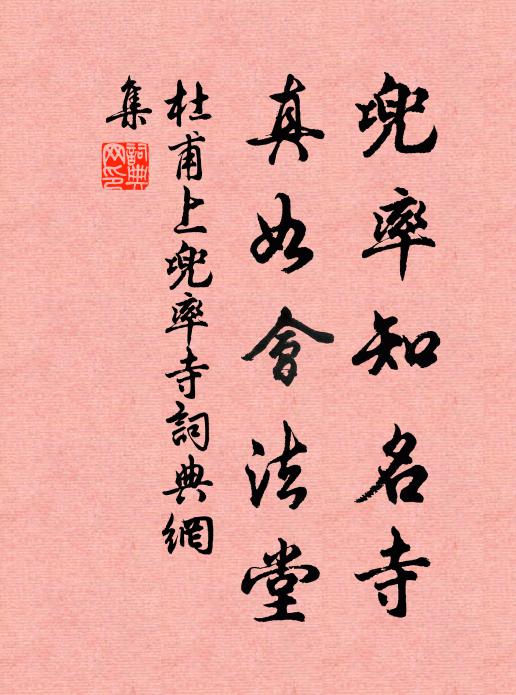 兜率知名寺
真如會法堂
杜甫上兜率寺詞典網
集
詞典
网印